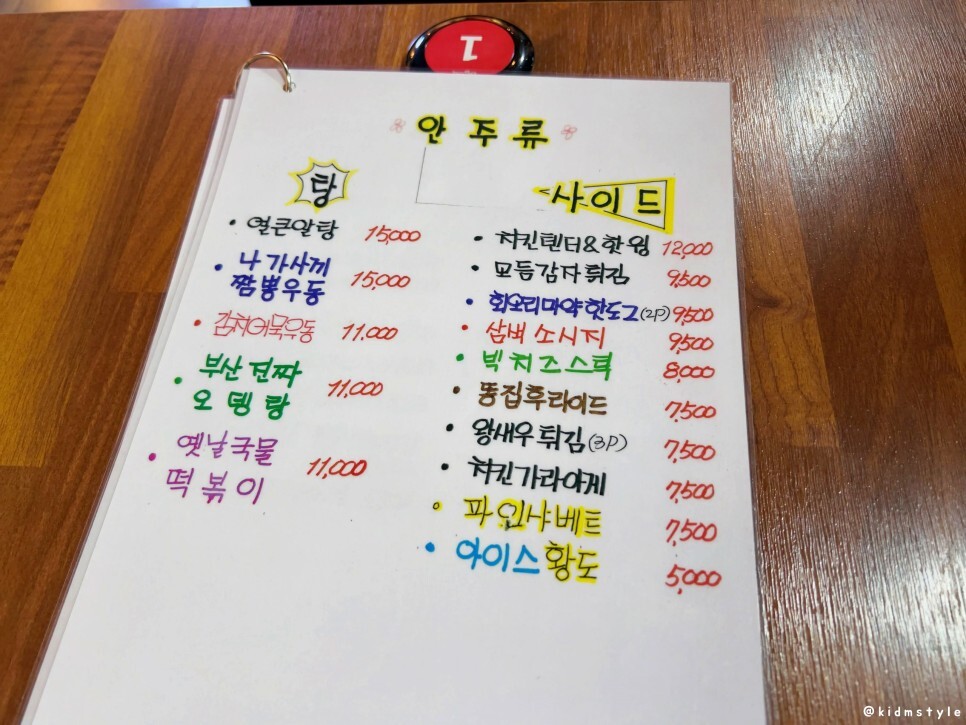 1
안주류
탕
얼큰알탕 15,000
나가사끼
짬뽕우동 15,000
김치어묵우동 11,000
부산진짜
오뎅탕 11,000
옛날국물
떡볶이 11,000
사이드
치킨텐더&핫윙 12,000
모듬감자튀김 9,500
회오리마약핫도그(2P) 9,500
삼벅소시지 9,500
빅치즈스틱 8,000
똥집후라이드 7,500
왕새우튀김(3P) 7,500
치킨가라아게 7,500
파인샤베트 7,500
아이스황도 5,000
@kidmstyle